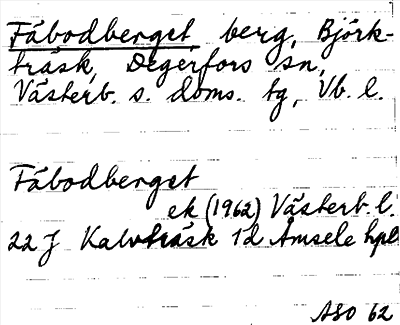 Fäbodberget, berg, Björk-
träsk, Degerfors sn,
Västerb. s. doms. tg, Vb. l.
Fäbodberget
ek (1962) Västerb. l.
22 J Kalvträsk 1d Åmsele hpl
ASO 62